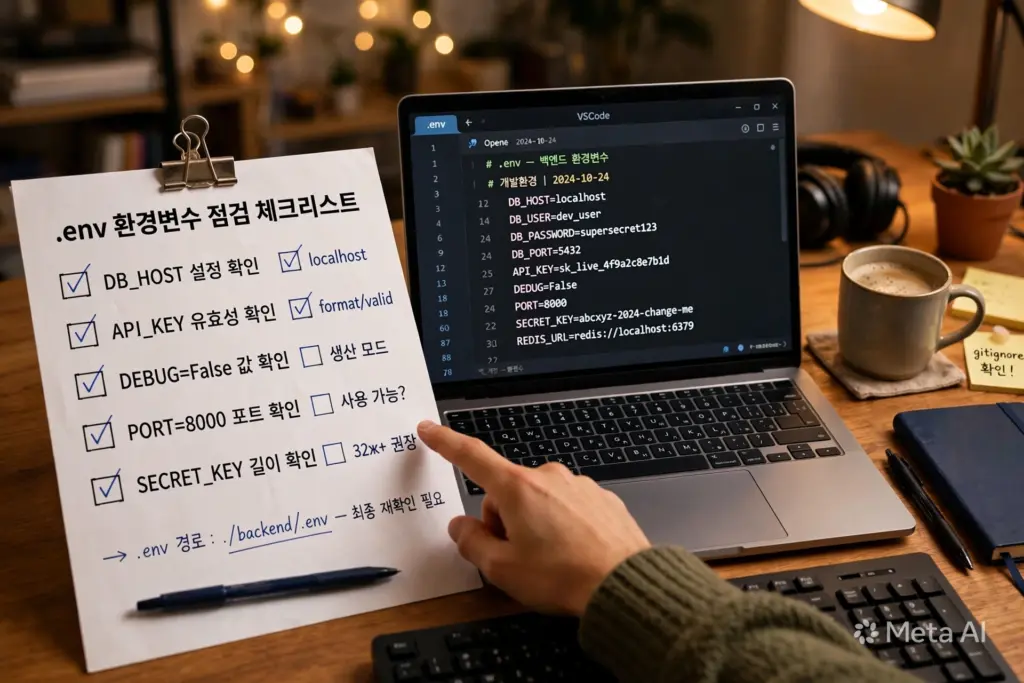 .env 환경변수 점검 체크리스트
DB_HOST 설정 확인 localhost
API_KEY 유효성 확인 format/valid
DEBUG=False 값 확인 생산 모드
PORT=8000 포트 확인 사용 가능?
SECRET_KEY 길이 확인 32ж+ 권장
→ .env 경로 : ./backend/.env — 최종 재확인 필요
VSCode
.env
Opene 2024-10-24
# .env — 백엔드 환경변수
# 개발환경 | 2024-10-24
DB_HOST=localhost
DB_USER=dev_user
DB_PASSWORD=supersecret123
DB_PORT=5432
API_KEY=sk_live_4f9a2c8e7b1d
DEBUG=False
PORT=8000
SECRET_KEY=abcxyz-2024-change-me
REDIS_URL=redis://localhost:6379
gitignore
확인!
Meta AI